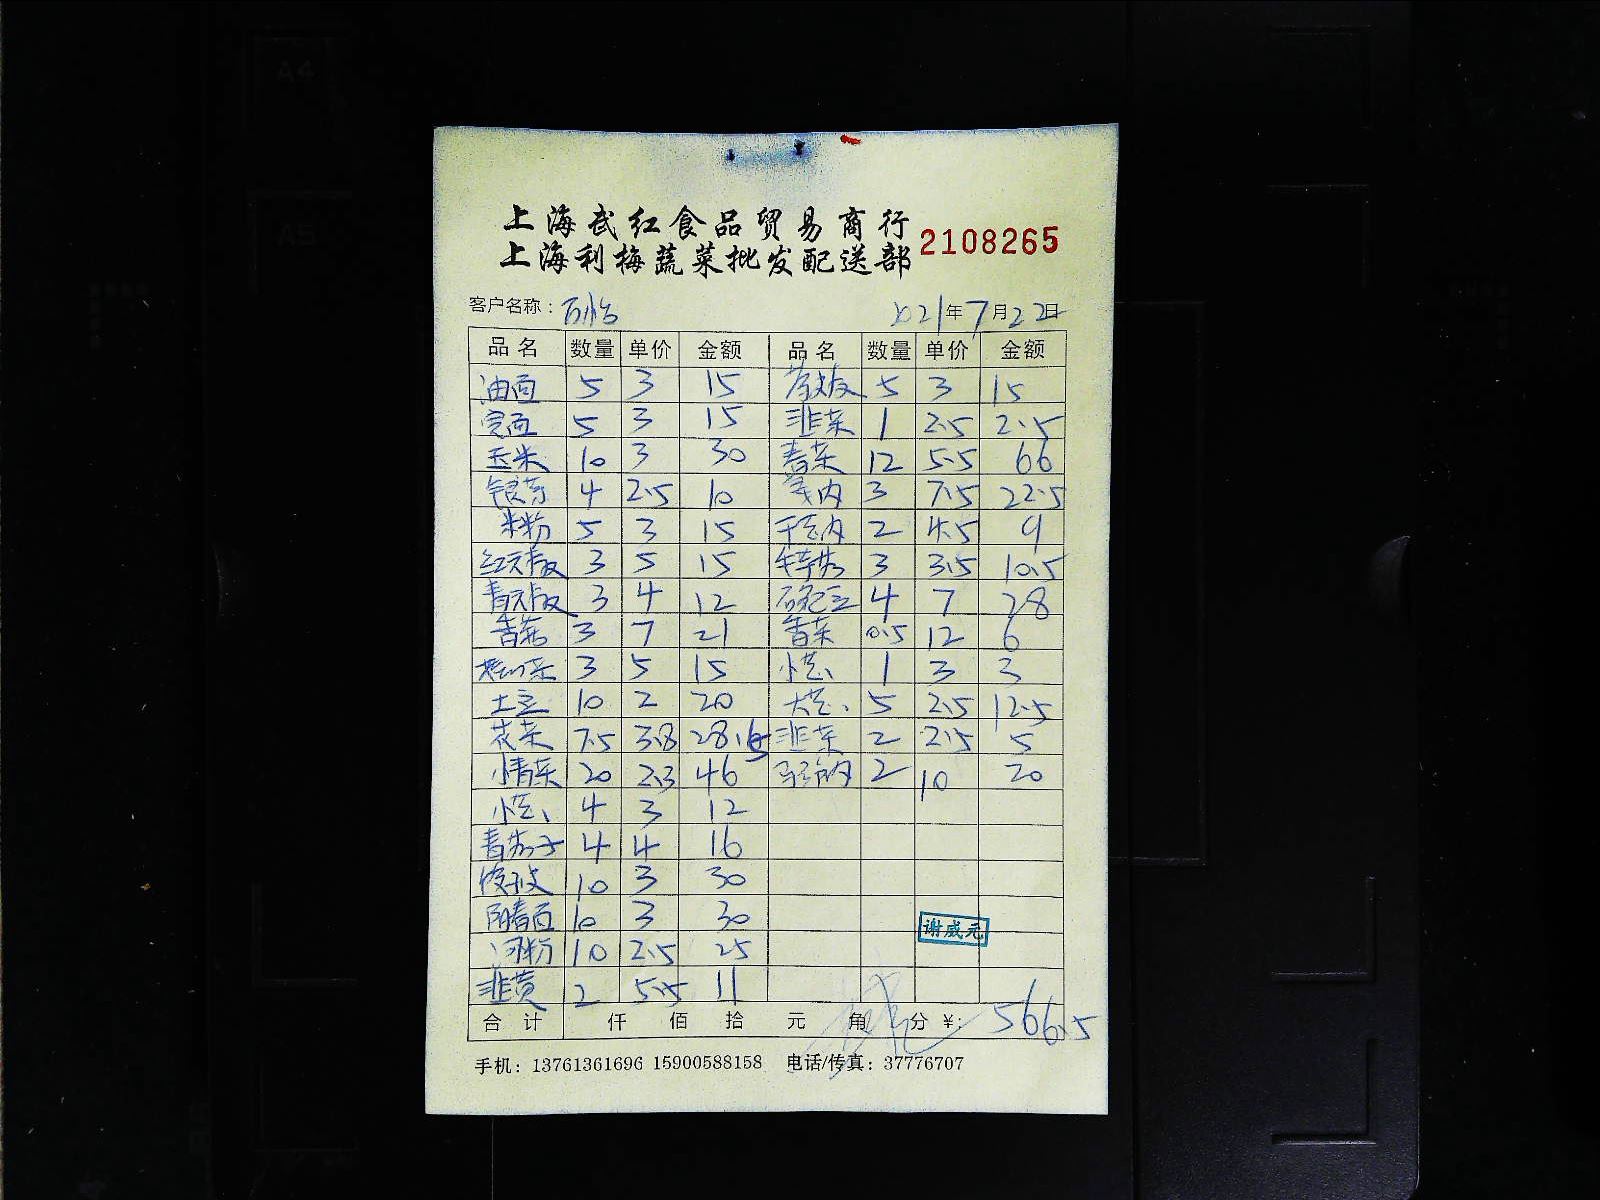 A4
A5
上海武红食品贸易商行
上海利梅蔬菜批发配送部 2108265
客户名称: 百怡 2021年7月22日
品名 数量 单价 金额 品名 数量 单价 金额
油面 5 3 15 5 3 15
宽面 5 3 15 韭菜 1 2.5 2.5
玉米 10 3 30 春菜 12 5.5 66
银芽 4 2.5 10 3 7.5 22.5
米粉 5 3 15 2 4.5 9
红元椒 3 5 15 3 3.5 10.5
青元椒 3 4 12 4 7 28
香菇 3 7 21 香菜 0.5 12 6
3 5 15 小葱 1 3 3
土豆 10 2 20 大葱 5 2.5 12.5
花菜 7.5 3.8 28.5 韭菜 2 2.5 5
小青菜 20 2.3 46 2 10 20
小葱 4 3 12
4 4 16
10 3 30
阳春面 10 3 30
河粉 10 2.5 25
韭黄 2 5.5 11
谢威元
合计 仟 佰 拾 元 角 分 ¥: 566.5
手机: 13761361696 15900588158 电话/传真: 37776707